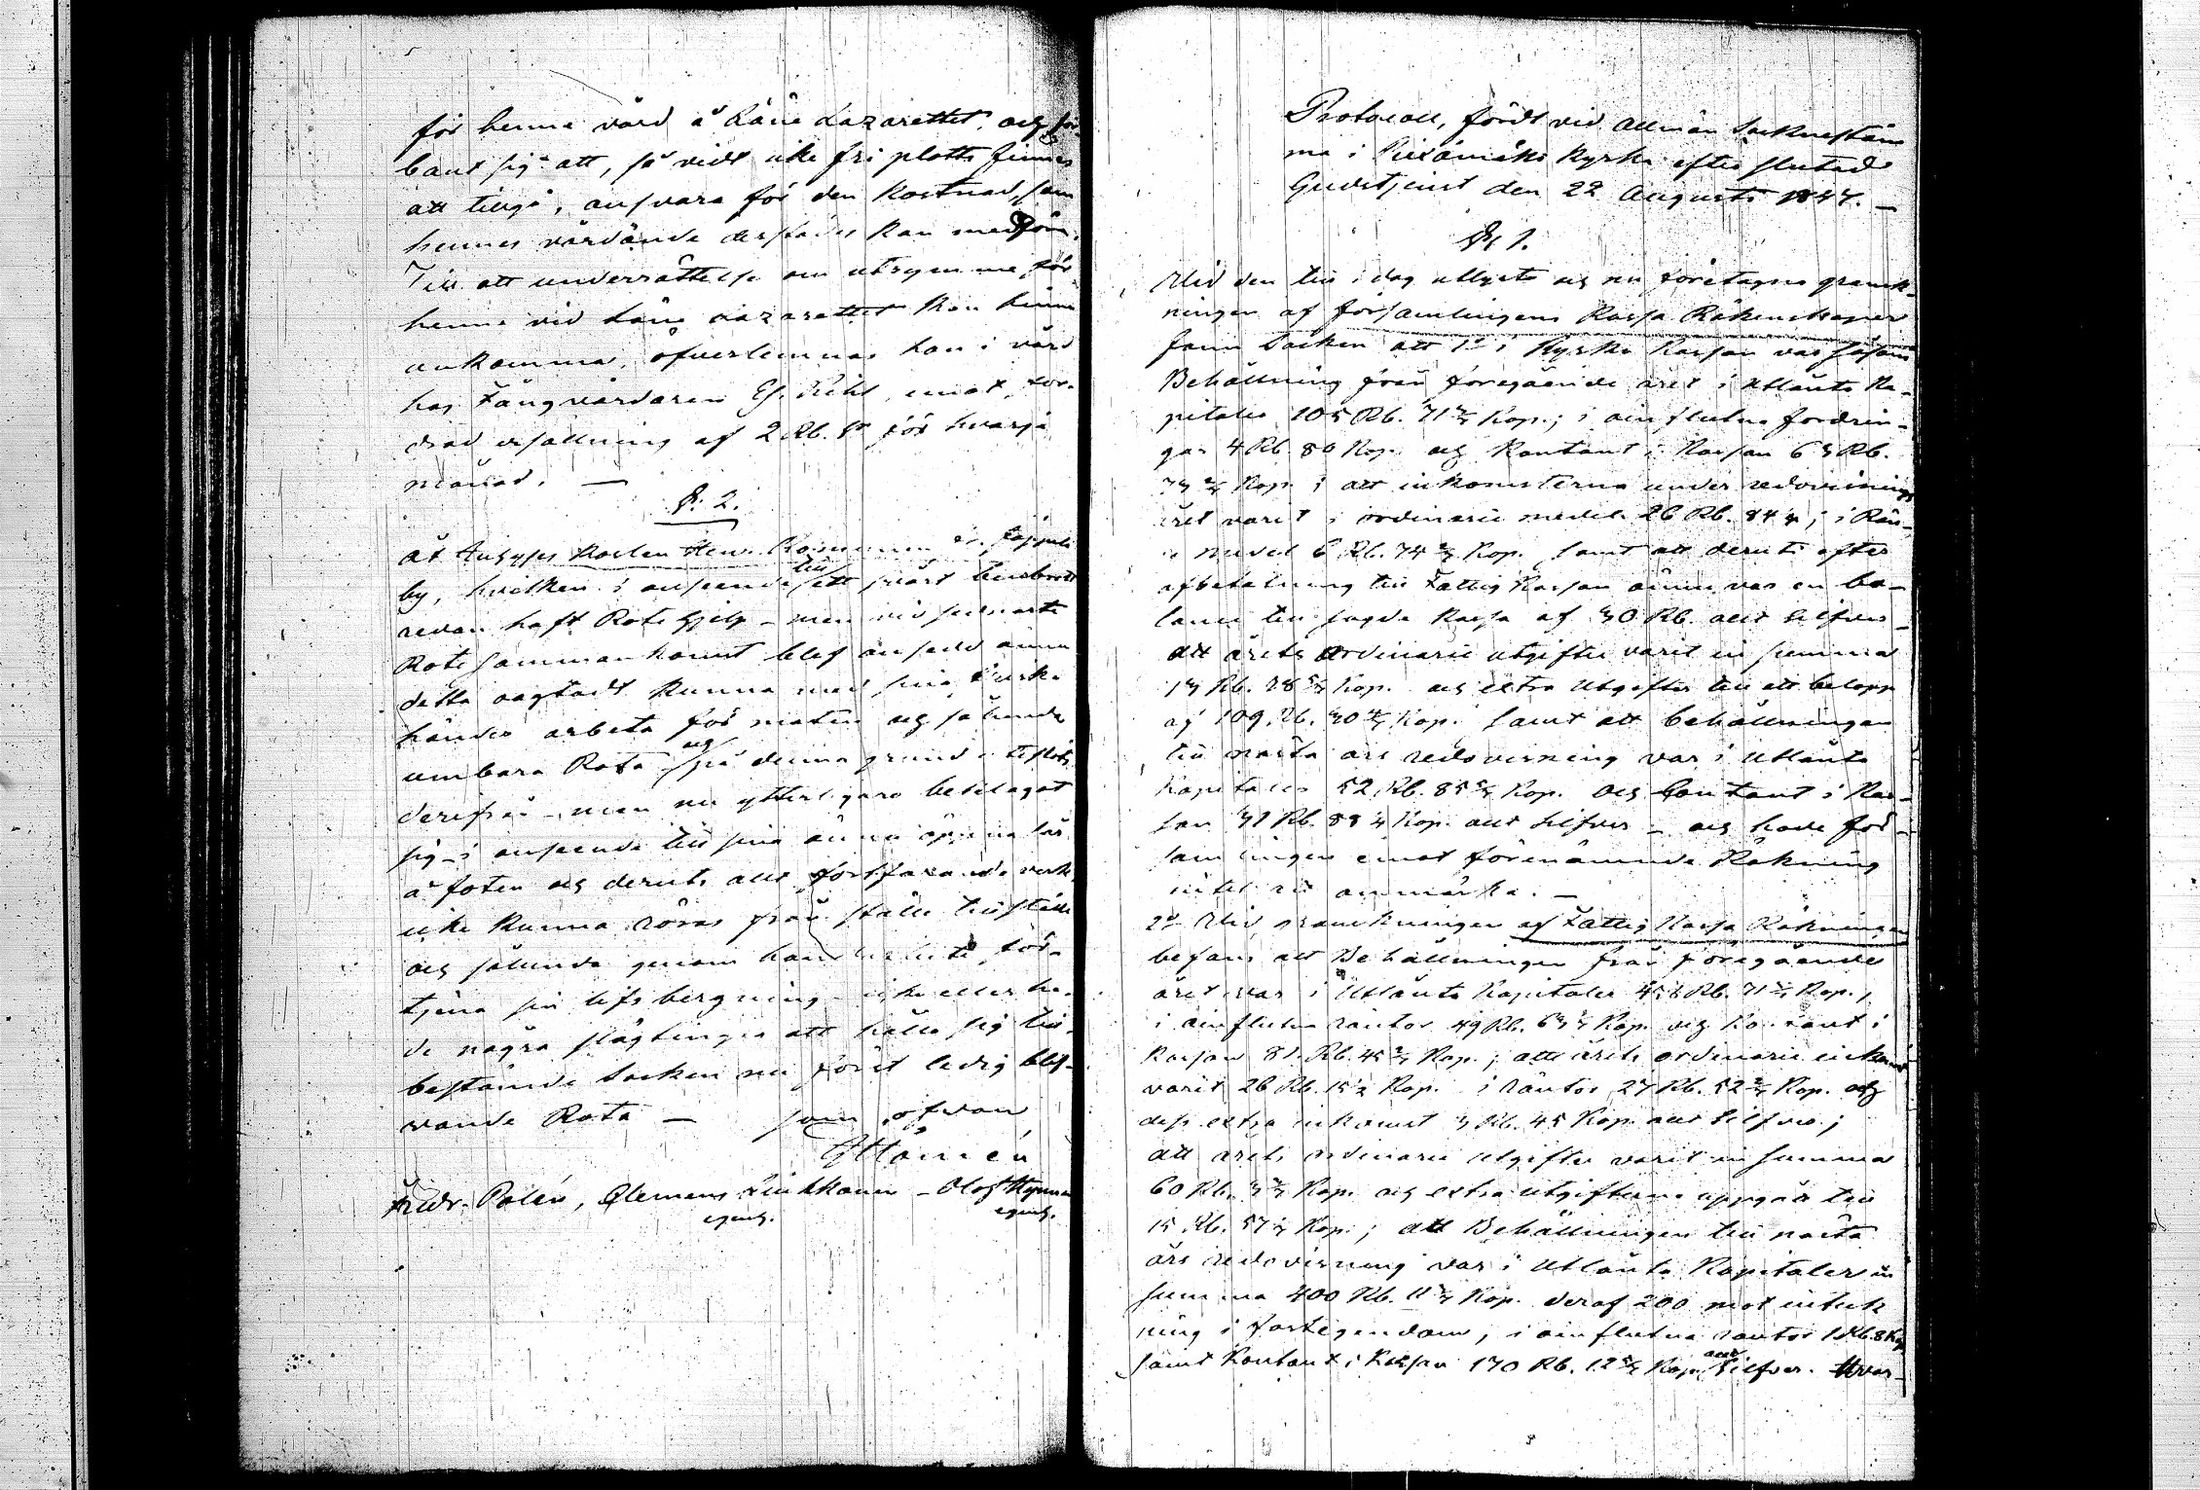 för henne vård å Läne Lazarettet, och för-
band sig att, så vidt icke fri platts finnes
att tillgå, ansvara för den kostnad, som
hennes vårdande derstädes kan medföra.
Till att underrättelse om utrymme för
henne vid Läns Lazarettet kan hinna
ankomma, öfverlemnas hon i vård
hos Fångvårdaren Es. Pihl, emot for-
drad ersättning af 2 Rb. Sr för hvarje
månad. —
§. 2.
Åt Inhyses Karlen Henr.
by, hvilken i anseende till ett svårt benbrott
redan haft Rote hjelp – men vid sednaste
Rote sammankomst blef ansedd ännu
detta oagtadt kunna med sina friska
händer arbeta för maten och sålunda
umbära Rota och på denna grund utesluts
derifrån – men nu ytterligare beklagat
sig – i anseende till sina ännu öppna sår
å foten och deruti allt fortfarande verk
icke kunna röras från ställe till ställe
och sålunda genom handarbete för-
tjena sin lifsbergning – icke eller ha-
de några slägtingar att hålla sig till,
bestämde Socken nu först ledig blif-
vande Rota — som ofvan
Fredr. Polén, Clemens – Olof
egend. egend.
Protocoll, fördt vid allmän Sockneståm
ma i Pielismäki Kyrka efter slutad
Gudstjenst den 22 Augusti 1847. —
§ 1.
Vid den till i dag utlyste och nu företagne gransk-
ningen af församlingens Kassa Räkenskaper
fann Socken att 1o i Kyrko Kassan var såsom
Behållning från föregående året i utlånte Ka-
pitaler 105 Rb. 71 3/7 Kop.; i oinflutne fordrin-
gar 4 Rb. 80 Kop. och Kontant i Kassan 63 Rb.
Kop. ; att inkomsterna under redovisnings
året varit i ordinarie medel 26 Rb. 84 ; i Rän-
te medel 6 Rb. 74 2/7 Kop. samt att deruti efter
afbetalning till Fattig Kassan ännu var en ba-
lance till sagde Kassa af 30 Rb. allt Silfver –
att årets ordinarie utgifter varit in summa
13 Rb. 28 5/7 Kop. och extra Utgifter till ett belopp
af 109 Rb. 30 4/7 Kop. samt att behållningen
till nästa års redovisning var i Utlånte
Kapitaler 52 Rb. 85 5/7 Kop. och Contant i Kas-
san 31 Rb. 88 Kop. allt Silfver – och hade för-
samlingen emot förenämnde Räkning
intet att anmärka. —
2o Vid granskningen af Fattig Kassa Räkningen
befans att Behållningen från föregående
året var i Utlånte Kapitaler Rb. 71 3/7 Kop.,
i oinflutne räntor 49 Rb. Kop. och Kontant i
Kassan 81 Rb. 45 2/7 Kop.; att årets ordinarie inkomst
varit 26 Rb. 15 Kop. i räntor 27 Rb. 52 2/7 Kop. och
dess extra inkomst 3 Rb. 45 Kop. allt Silfver;
att årets ordinarie utgifter varit in summa
60 Rb. Kop. och extra utgifterne uppgått till
15 Rb. 57 1/7 Kop.; att Behållningen till nästa
års redovisning var i Utlånte Kapitaler in
summa 400 Rb. 11 3/7 Kop. deraf 200 mot inteck
ning i fast egendom, i oinflutne räntor 1 Rb. 8 Kop
samt Kontant i Kassan 170 Rb. 12 5/7 Kop. allt Silfver. Hvar-